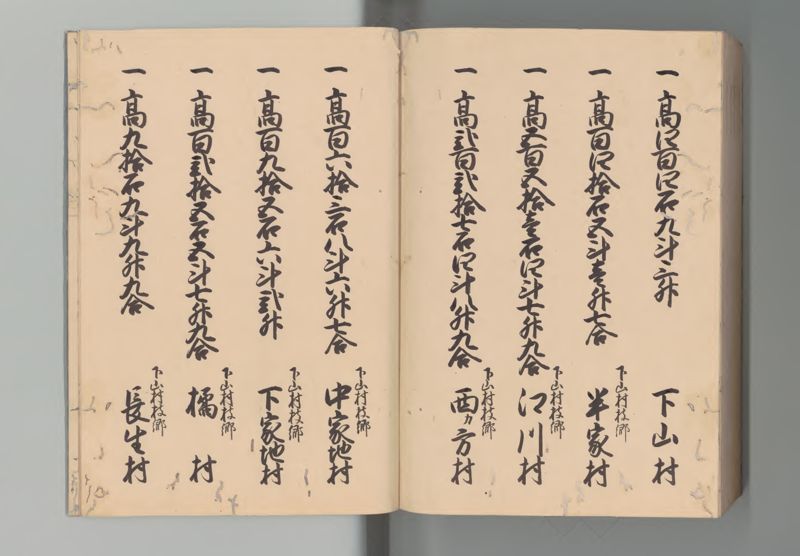 一 高四百四石九斗三升 下山村
一 高百四拾石五斗壱升七合 下山村枝郷 半家村
一 高五百五拾壱石四斗七升九合 下山村枝郷 江川村
一 高弐百弐拾七石四斗八升九合 下山村枝郷 西ヵ方村
一 高百六拾三石八斗六升七合 下山村枝郷 中家地村
一 高百九拾五石六斗弐升 下山村枝郷 下家地村
一 高百弐拾五石五斗七升九合 下山村枝郷 橘村
一 高九拾石九斗九升九合 下山村枝郷 長生村